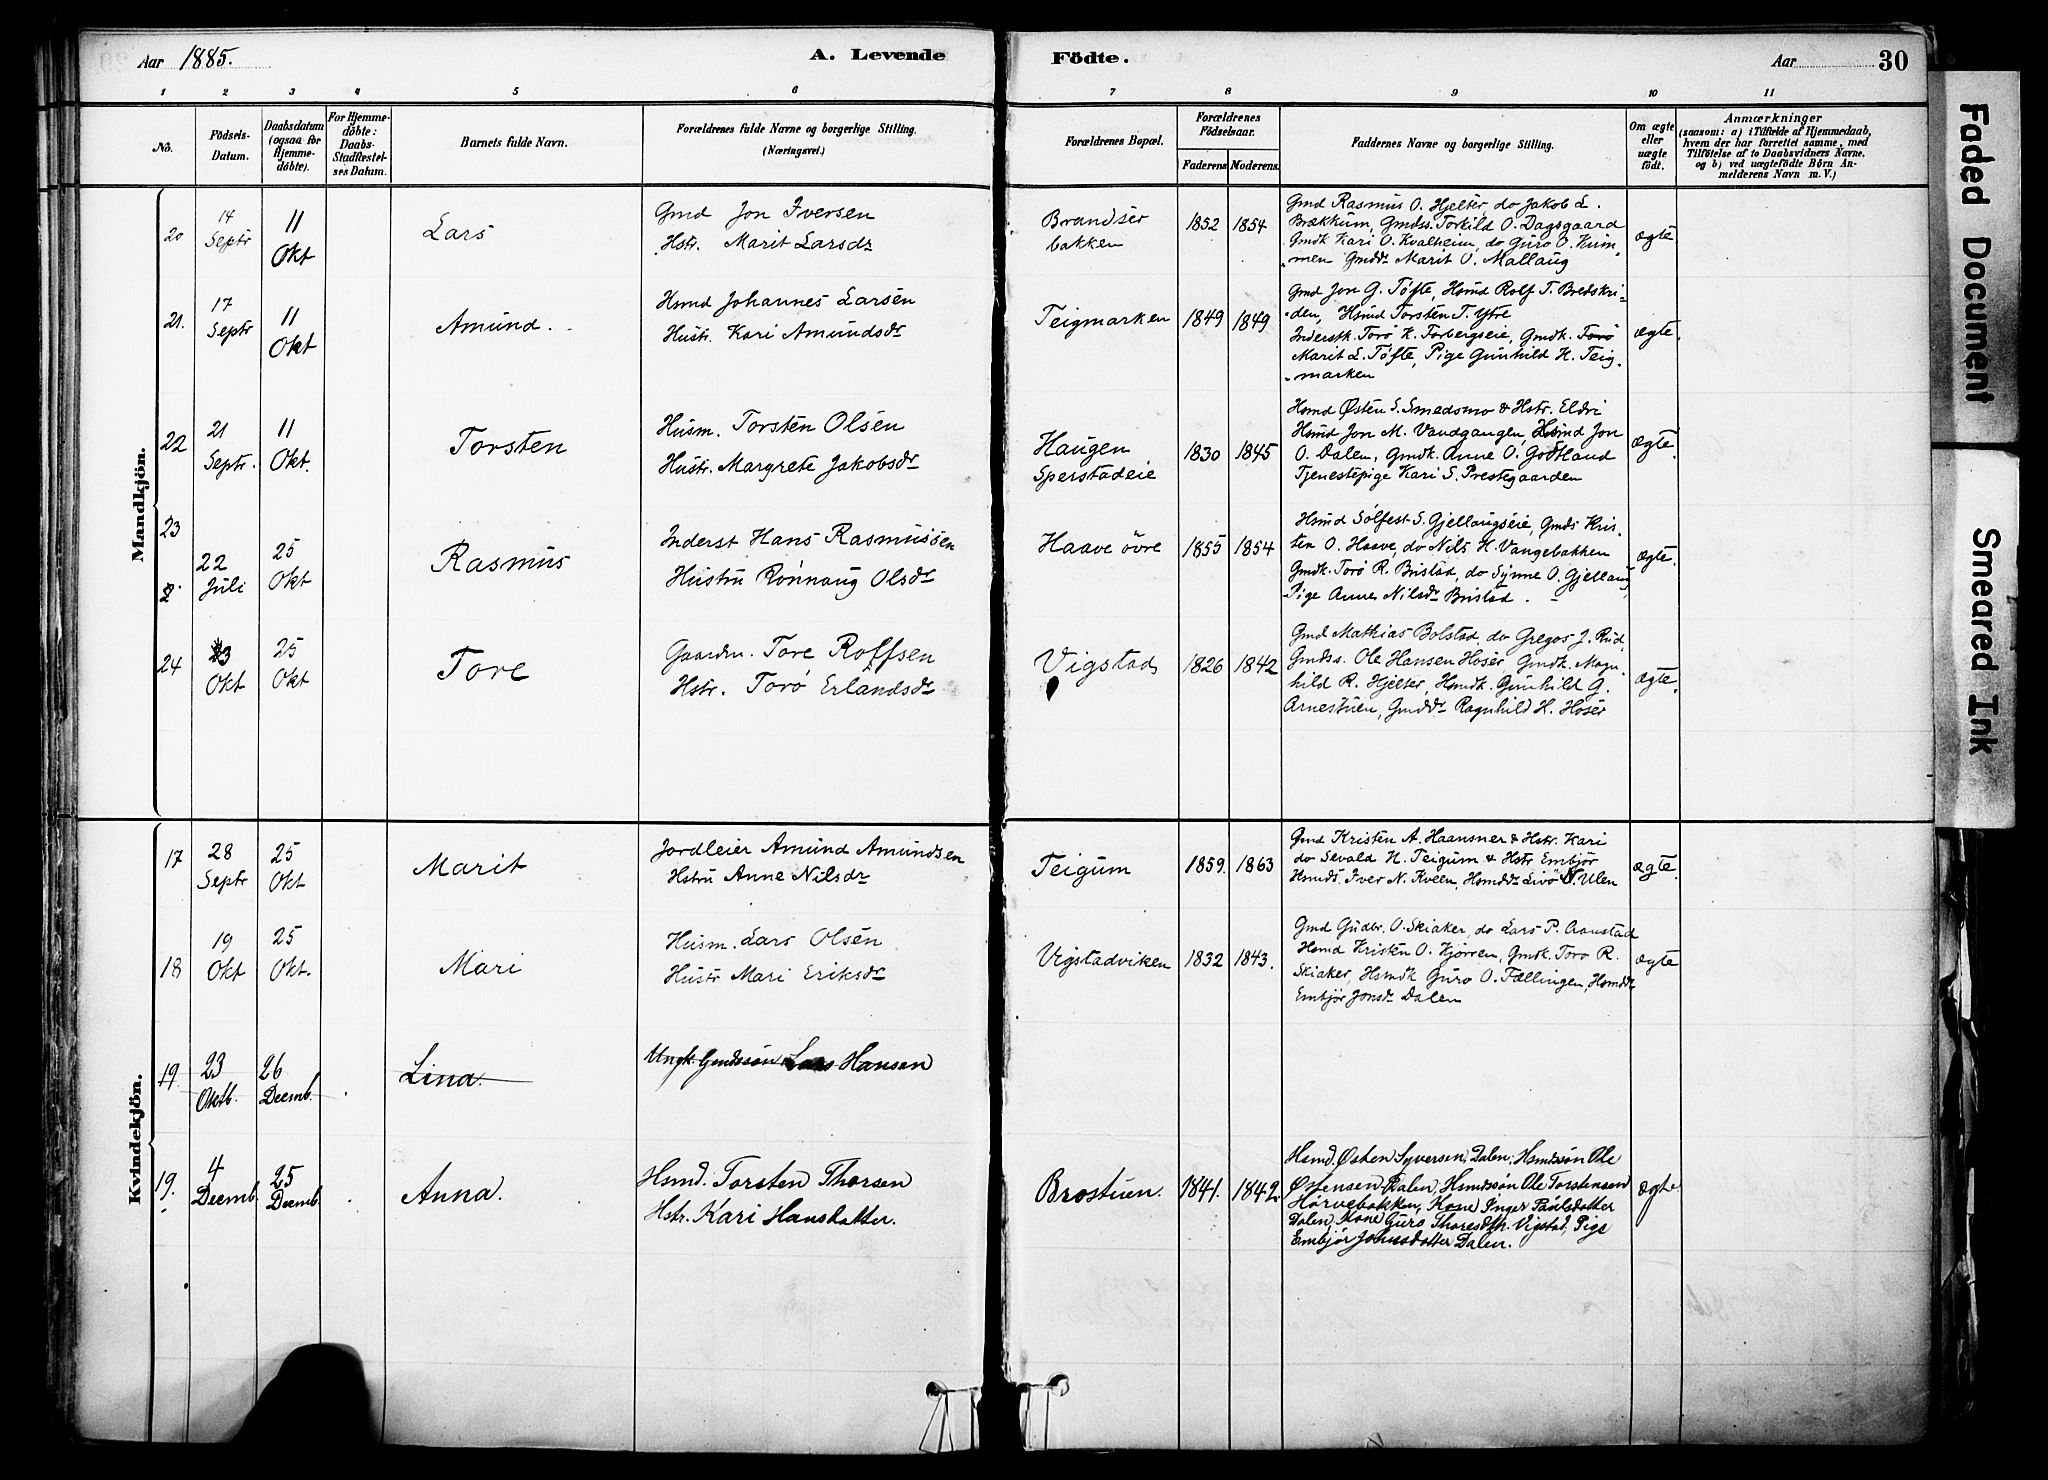 Aar 1885.
A. Levende
Födte.
Aar
30
1 2 3 4 5 6 7 8 9 10 11
No.
Födsels-Datum.
Daabsdatum (ogsaa for Hjemme-döbte).
For Hjemme-döbte: Daabs-Stadfæstel-ses Datum.
Barnets fulde Navn.
Forældrenes fulde Navne og borgerlige Stilling.
(Næringsvei.)
Forældrenes Bopæl.
Forældrenes Födselsaar.
Faderens. Moderens.
Faddernes Navne og borgerlige Stilling.
Om ægte eller uægte födt.
Anmærkninger
(saasom: a) i Tilfælde af Hjemmedaab,
hvem der har forrettet samme, med
Tilföielse af to Daabsvidners Navne,
og b) ved uægtefödte Börn An-
melderens Navn m. V.)
Mandkjön.
20 14 Septr 11 Okt Lars
Gmd Jon Iversen
Hstr. Marit Larsdr
Brandser
bakken
1852 1854
Gmd Rasmus O. Hjelter, do Jakob L.
Brækkum, Gmdss. Torkild O. Dagsgaard
Gmdk Kari O. Kvalheim, do Guro O. Kum„
„men Gmddr Marit O. Mallaug
ægte
21. 17 Septr 11 Okt Amund.
Hsmd Johannes Larsen
Hustr. Kari Amundsdr
Teigmarken
1849 1849
Gmd Jon G. Tofte, Hsmd Rolf T. Bredskri-
den, Hsmd Torsten T. Ytre
Inderstk. Torø K. Forbergseie, Gmdk. Torø
Marit L. Tofte, Pige Gunhild H. Teig„
„marken
ægte.
22 21 Septr. 11 Okt. Torsten
Husm. Torsten Olsen
Hustr. Margrete Jakobsdr
Haugen
Sperstadeie
1830 1845
Hsmd Østen S. Smedsmo & Hstr. Eldri
Hsmd Jon M. Vandgangen, Hsmd Jon
O. Dalen, Gmdk. Anne O. Godtland
Tjenestepige Kari S. Prestegaarden
Ægte.
23 22 Juli 25 Okt Rasmus
Inderst Hans Rasmussen
Hustru Rønnaug Olsdr
Haave øvre
1855 1854
Hsmd Sølfest S. Gjellaugseie, Gmds Kris-
ten O. Haave, do Nils H. Vangebakken
Gmdk. Torø R. Bristad, do Synne O. Gjellaug
Pige Anne Nilsdr Bristad.
Ægte.
24 23 Okt 25 Okt Tore
Gaardm. Tore Rolfsen
Hstr. Torø Erlandsdr
Vigstad
1826 1842
Gmd Mathias Bolstad, do Gregos J. Rud
Gmdss. Ole Hansen Hosér Gmdk. Magn„
hild R. Hjelter, Hsmdk. Gunhild G.
Arnestuen, Gmddr Ragnhild H. Hosér
Ægte.
Kvindekjön.
17 28 Septr 25 Okt Marit
Jordleier Amund Amundsen
Hstru Anne Nilsdr
Teigum
1859. 1863
Gmd Kristen A. Haansner & Hstr. Kari
do Sevald H. Teigum & Hstr Embjør
Hsmds. Iver N. Kveen, Hsmddr Livø N. Ulen
ægte.
18 19 Okt 25 Okt. Mari
Husm. Lars Olsen
Hustr Mari Eriksdr
Vigstadviken
1832 1843.
Gmd Gudbr. O. Skiaker, do Lars P. Aanstad
Hsmd Kristen O. Kjørren, Gmdk. Toro R.
Skiaker, Hsmdk Guro O. Fællingen, Hsmddr
Embjør Jonsdr Dalen
ægte
19. 23 Oktb. 26 Decmb. Lina.
Ungk. Gmdssøn Lars Hansen
19. 4 Decmb. 25 Decmb. Anna.
Hsmd. Torsten Thorsen
Hstr. Kari Hansdatter.
Brostuen.
1841. 1842.
Hsmd. Østen Syversen, Dalen, Hsmdssøn Ole
Østensen Dalen, Hsmdssøn Ole Torstensen
Hørvebakken, Kone Inger Paulsdatter
Dalen, Kone Guro Thoresdtr. Vigstad, Pige
Embjør Johnsdatter Dalen.
ægte
Faded Document
Smeared Ink